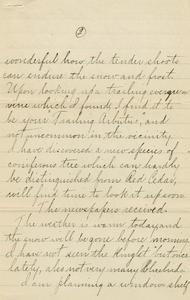 3
wonderful how the tender shoots
can endure the snow and frost.
Upon looking up a trailing evergreen
vine which I found, I find it to
be your "Trailing Arbutus", and
not uncommon in this vicinity.
I have discovered a new species of
coniferous tree which can hardly
be distinguished from Red Cedar,
will find time to look it up soon.
The newspapers received.
The weather is warm today and
the snow will be gone before morning.
I have not seen the
lately, also not very many Bluebirds.
I am planning a window shelf